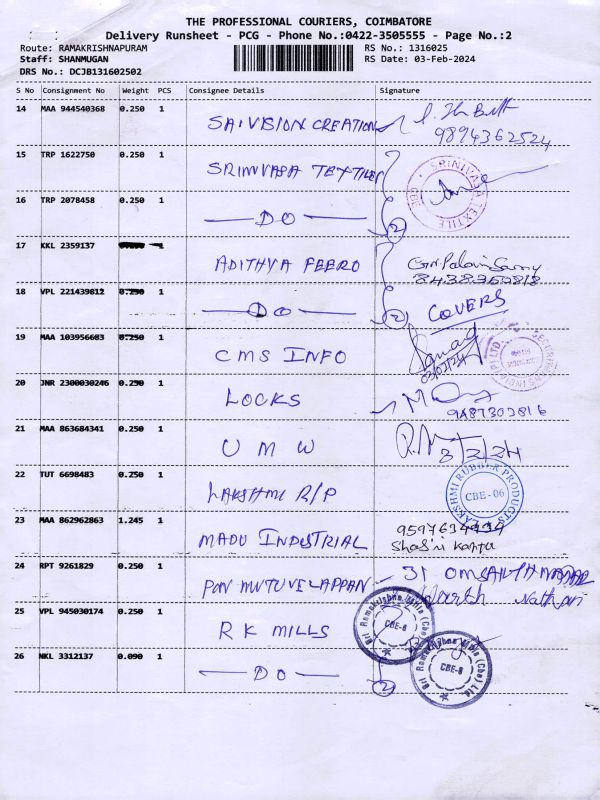 THE PROFESSIONAL COURIERS, COIMBATORE
Delivery Runsheet - PCG - Phone No.:0422-3505555 - Page No.:2
Route: RAMAKRISHNAPURAM RS No.: 1316025
Staff: SHANMUGAN RS Date: 03-Feb-2024
DRS No.: DCJB131602502
S No Consignment No Weight PCS Consignee Details Signature
14 MAA 944540368 0.250 1 SAIVISION CREATION
9894362524
15 TRP 1622750 0.250 1 SRINIVASA TEXTILES
SRINIVASA TEXTILE
16 TRP 2078458 0.250 1 DO 2
17 KKL 2359137 ADITHYA FEERO
8438350818
18 VPL 221439812 0.250 1 DO 2 COVERS
19 MAA 103956683 0.250 1 CMS INFO
20 JNR 2300030246 0.250 1 LOCKS
9487303816
21 MAA 863684341 0.250 1 U M W 3/2/24
22 TUT 6698483 0.250 1 LAKSHMI R/P
LAKSHMI RUBBER PRODUCTS CBE-06
23 MAA 862962863 1.245 1 MADU INDUSTRIAL
24 RPT 9261829 0.250 1 PON MUTUVELAPPAN 31
25 VPL 945030174 0.250 1 R K MILLS
Sri Ramakrishna Mills (Cbe) Ltd. CBE-6
Sri Ramakrishna Mills (Cbe) Ltd. CBE-6
26 NKL 3312137 0.090 1 DO 2